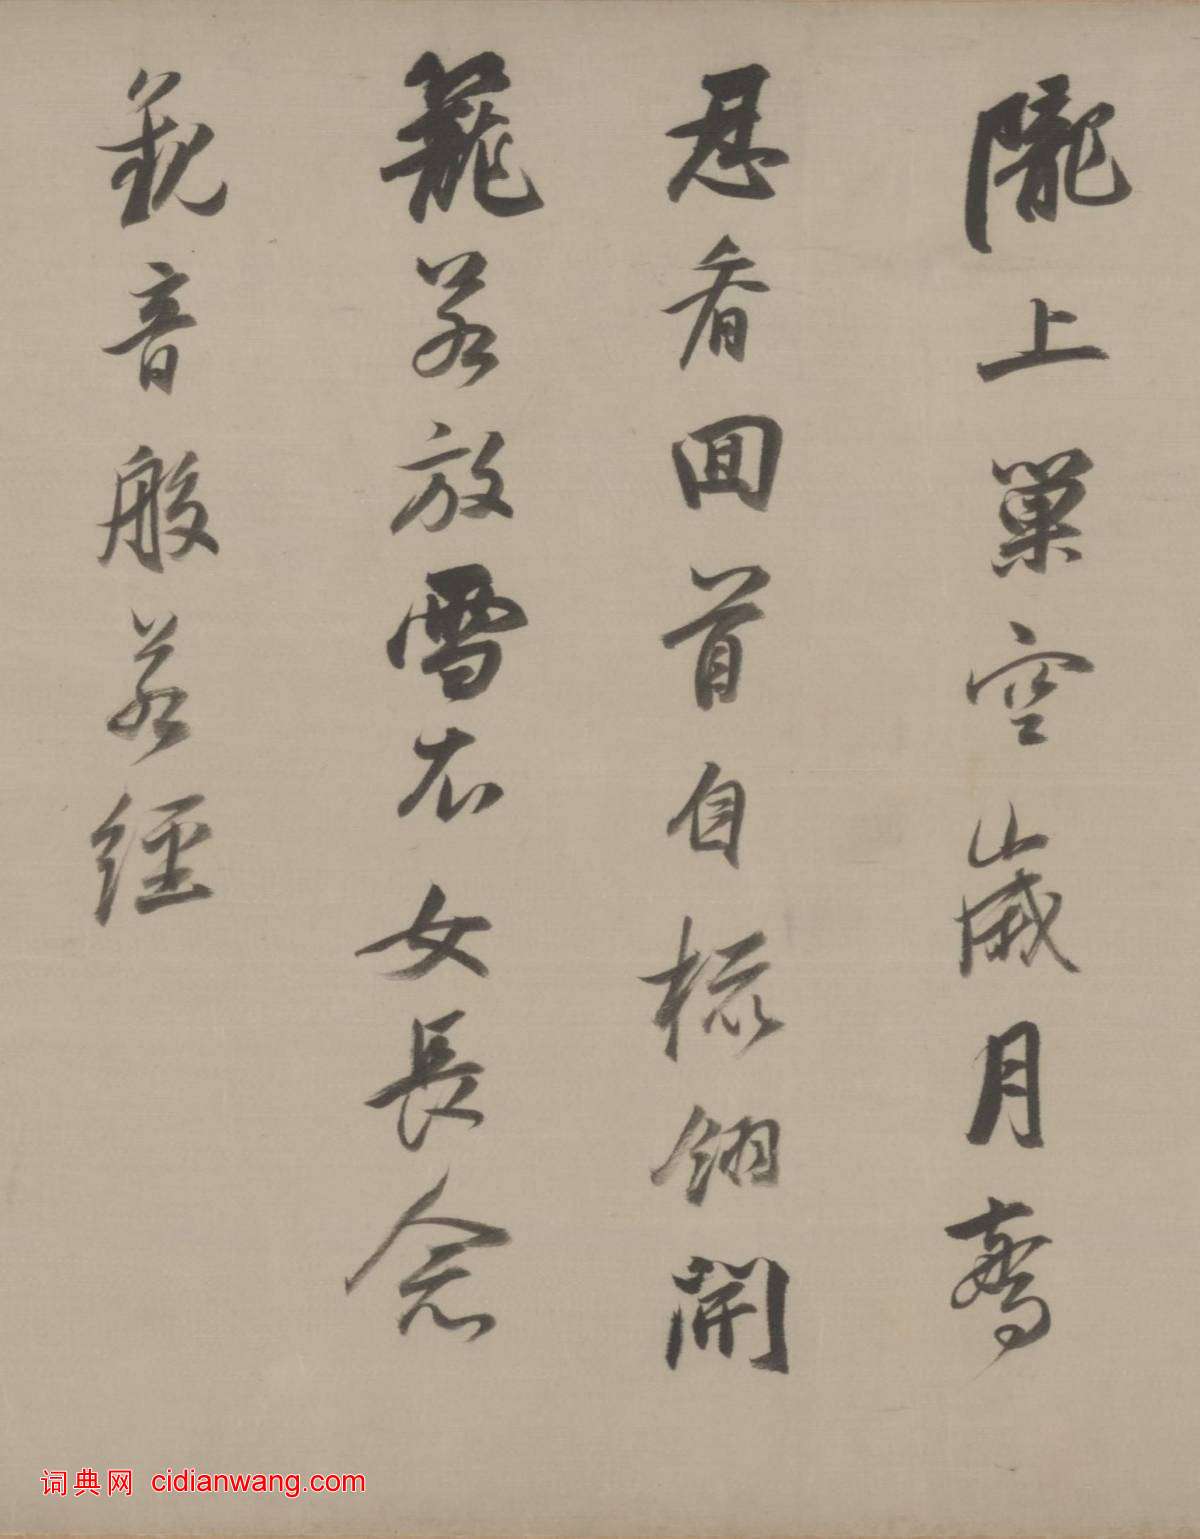 隴上巢空歲月驚
忍看回首自梳翎開
籠若放雪衣女長念
觀音般若經
词典网 cidianwang.com